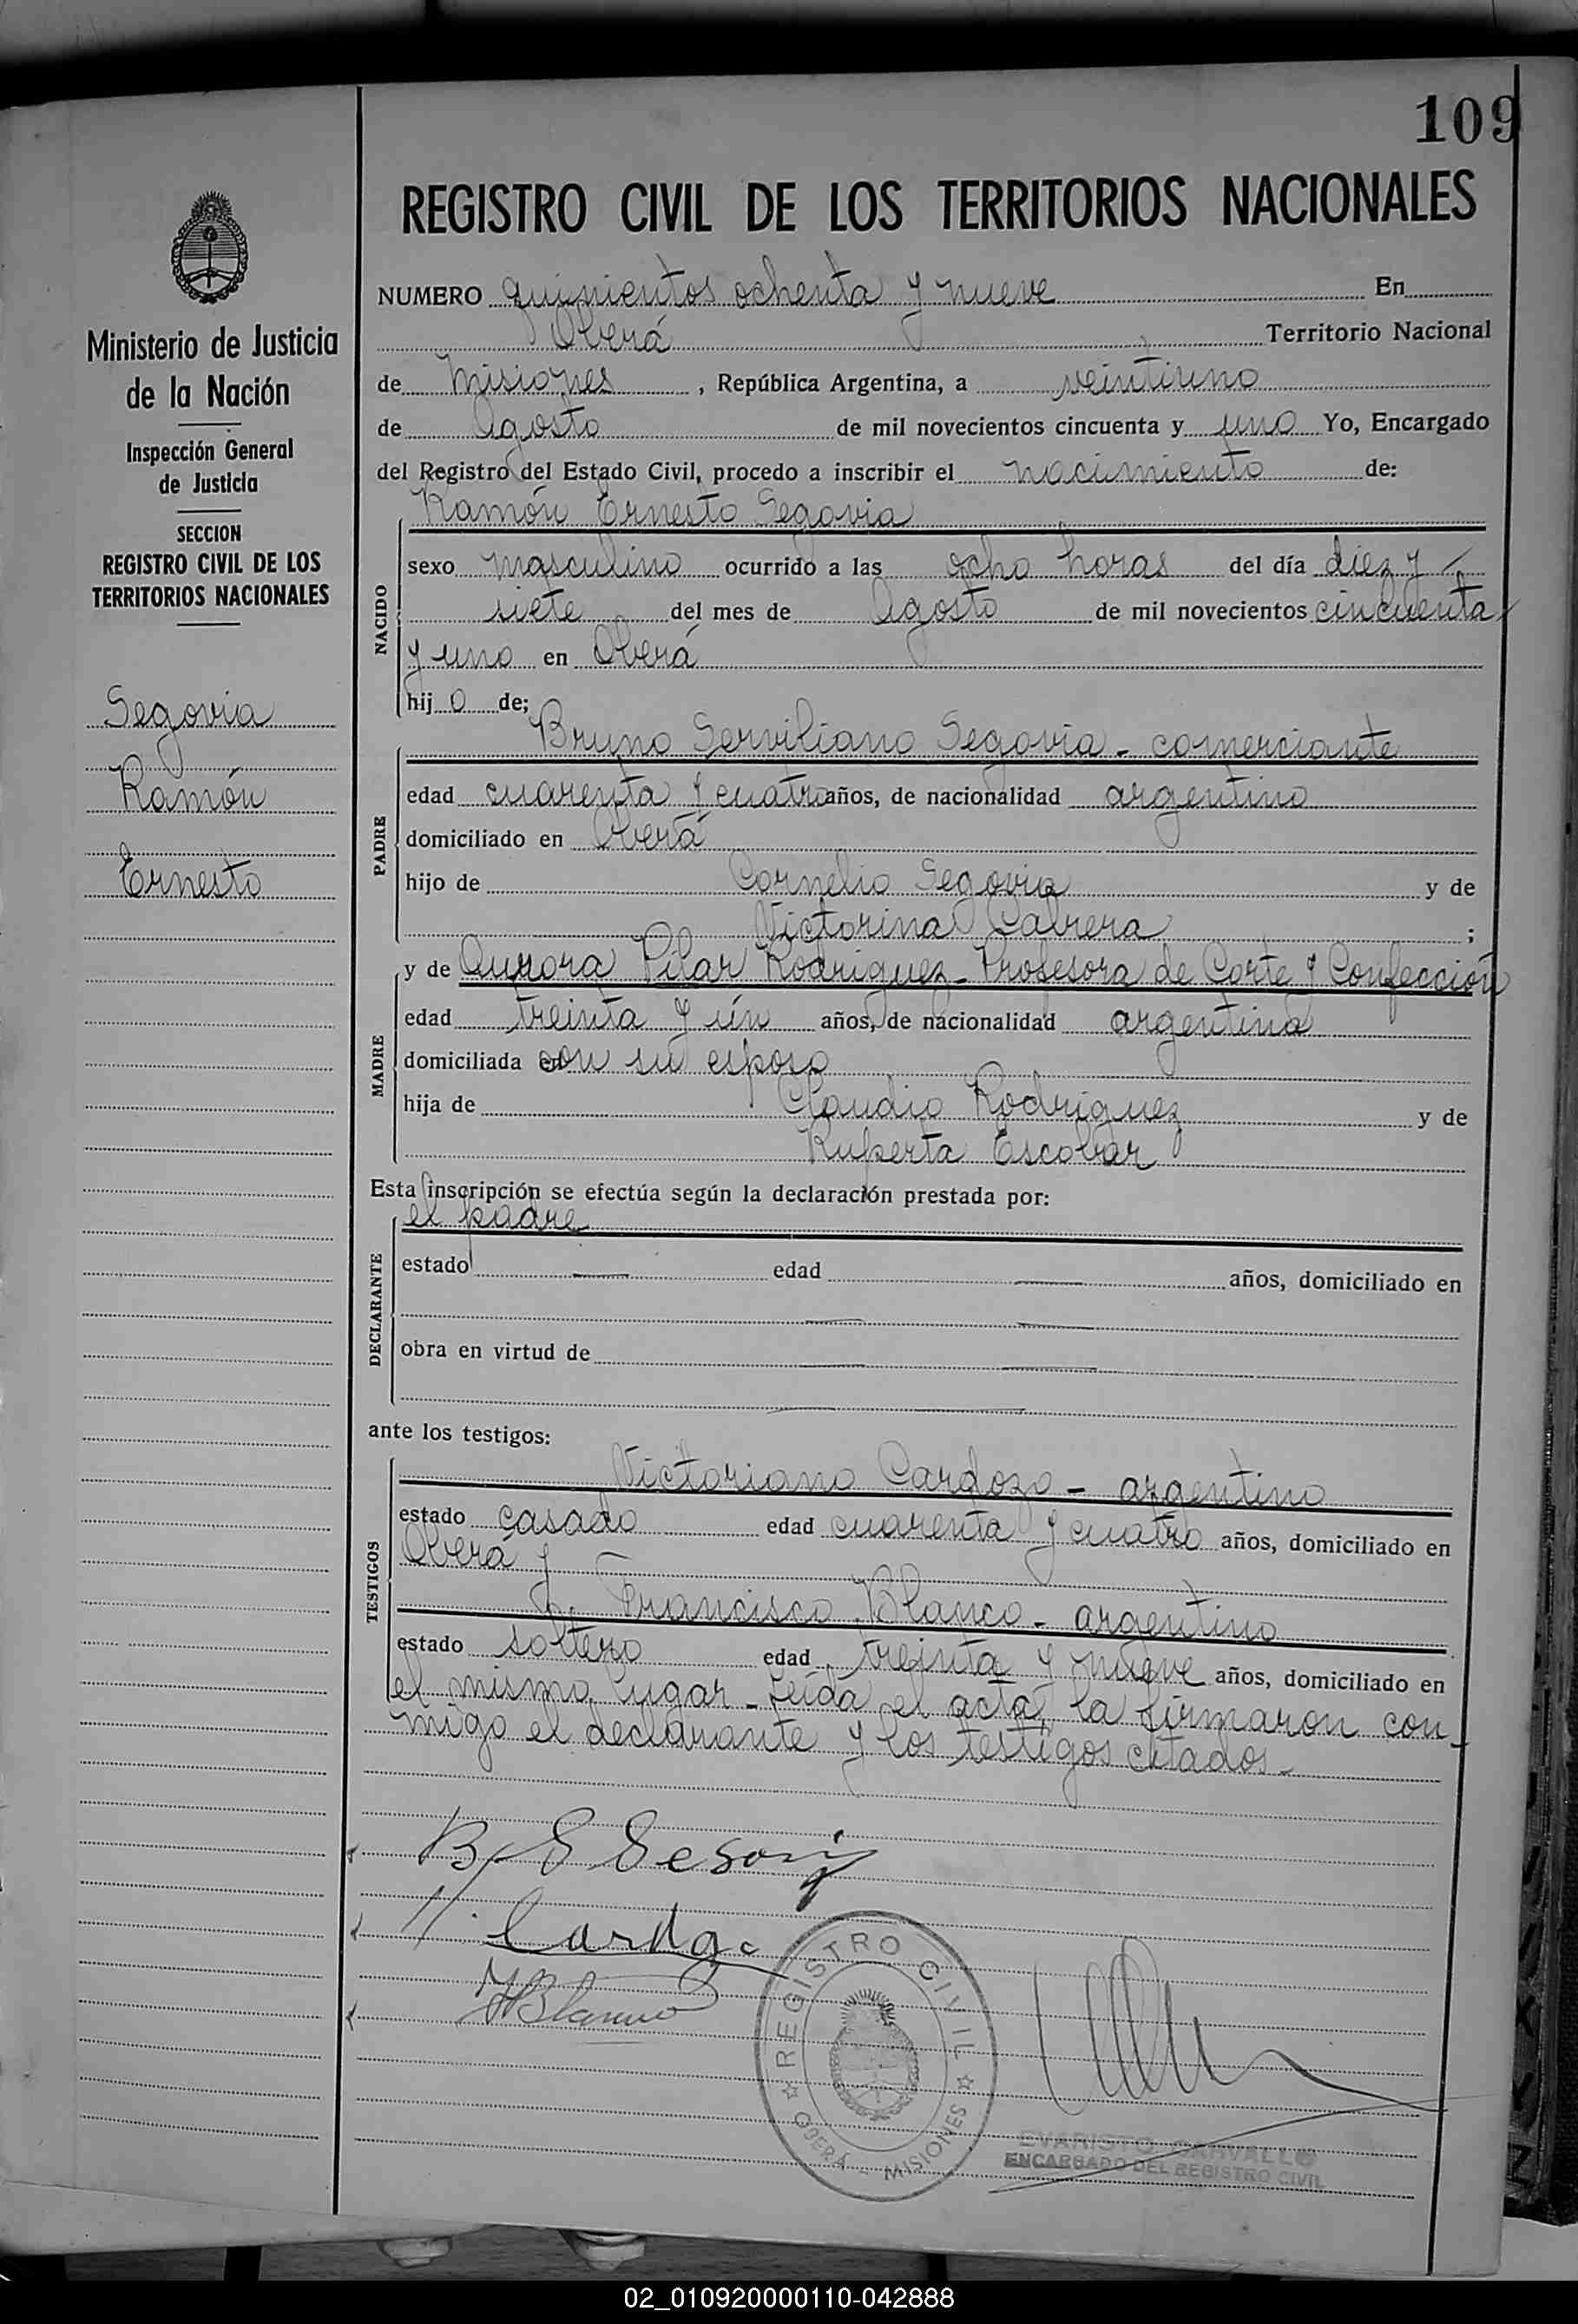 109
REGISTRO CIVIL DE LOS TERRITORIOS NACIONALES
Ministerio de Justicia
de la Nación
Inspección General
de Justicia
SECCION
REGISTRO CIVIL DE LOS
TERRITORIOS NACIONALES
Segovia
Ramón
Ernesto
NUMERO quinientos ochenta y nueve En
Oberá Territorio Nacional
de Misiones, República Argentina, a veintiuno
de Agosto de mil novecientos cincuenta y uno Yo, Encargado
del Registro del Estado Civil, procedo a inscribir el nacimiento de:
Ramón Ernesto Segovia
NACIDO
sexo masculino ocurrido a las ocho horas del día diez y
siete del mes de Agosto de mil novecientos cincuenta
y uno en Oberá
hij o de;
Bruno Serviliano Segovia - comerciante
PADRE
edad cuarenta y cuatro años, de nacionalidad argentino
domiciliado en Oberá
hijo de Cornelio Segovia y de
Victorina Cabrera ;
y de Aurora Pilar Rodriguez - Profesora de Corte y Confección
MADRE
edad treinta y ún años, de nacionalidad argentina
domiciliada con su esposo
hija de Claudio Rodriguez y de
Ruperta Escobar
Esta inscripción se efectúa según la declaración prestada por:
el padre
DECLARANTE
estado — edad — años, domiciliado en
obra en virtud de
ante los testigos:
Victoriano Cardozo - argentino
TESTIGOS
estado casado edad cuarenta y cuatro años, domiciliado en
Oberá y
Francisco Blanco - argentino
estado soltero edad treinta y nueve años, domiciliado en
el mismo lugar - Leída el acta, la firmaron con-
migo el declarante y los testigos citados -
B S Segovia
V. Cardozo
FBlanco
REGISTRO CIVIL
OBERÁ - MISIONES
EVARISTO CARVALLO
ENCARGADO DEL REGISTRO CIVIL
02_010920000110-042888